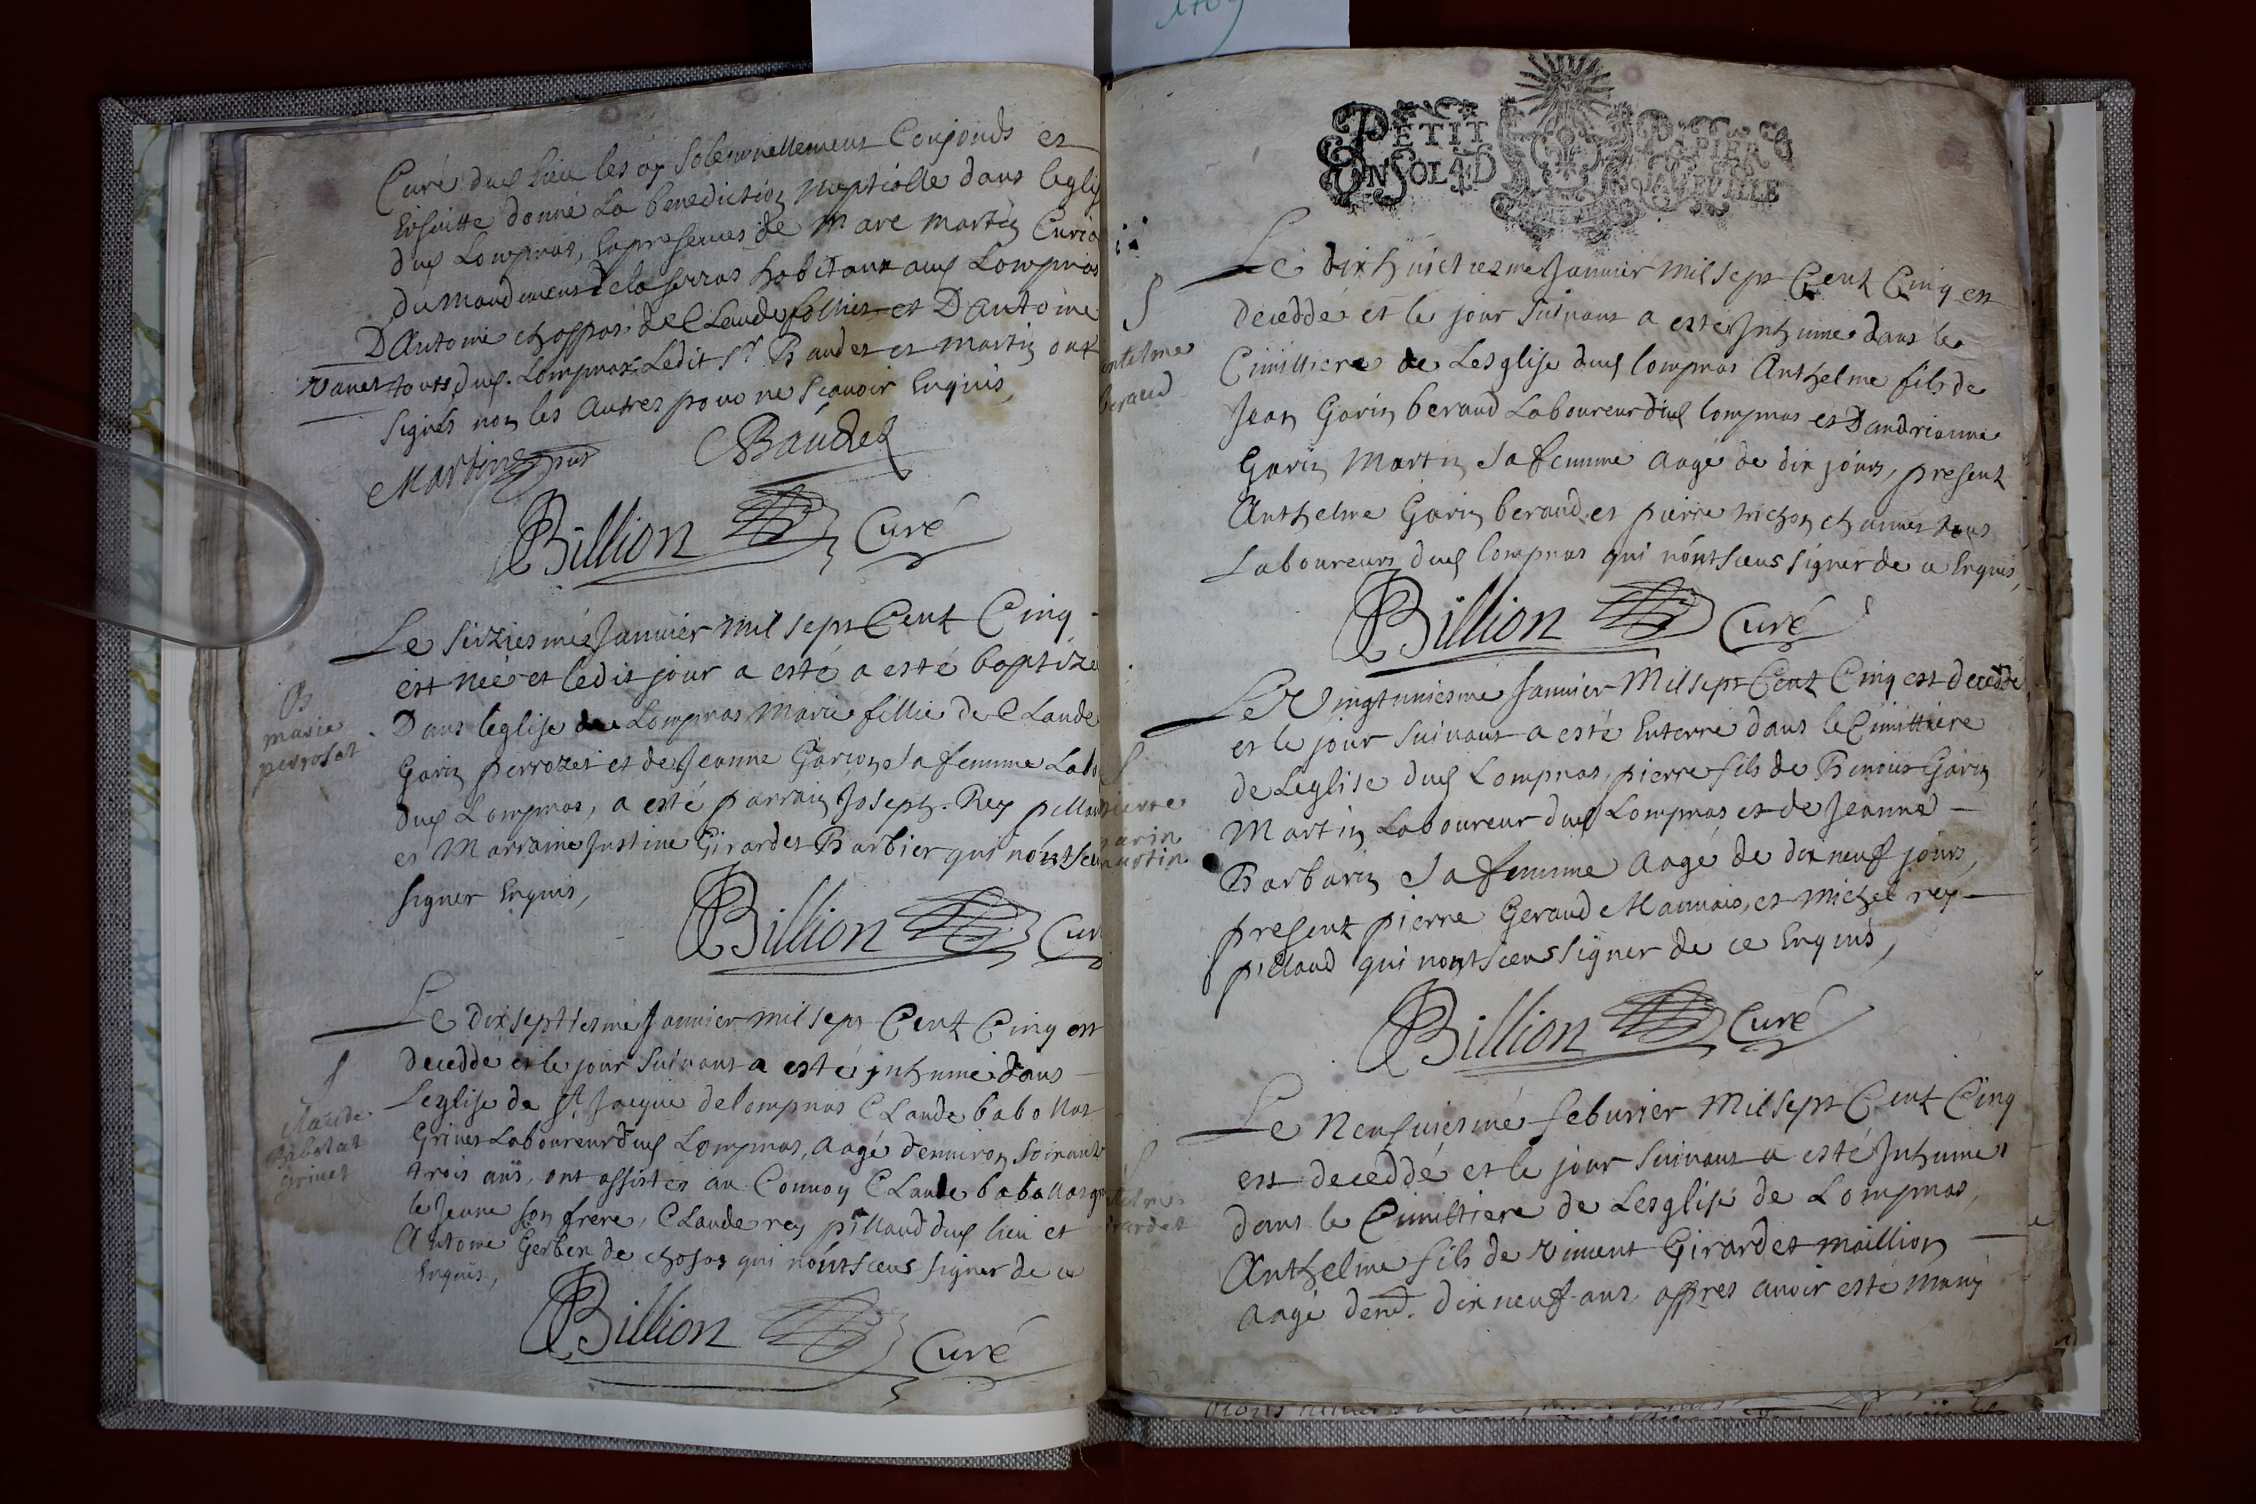 Curé dud lieu les ay Solemnellement Conjoinds et
Ensuitte donné La benediction nuptialle dans leglis
dud Lompnas, En presences de Marc Martin Curia
du mandement de la serras habitant aud Lompnas
D'Antoine choppas de Claude et D'antoine
touts dud. Lompnas Ledit Sr Baudet et Martin ont
Signés non les Autres pour ne Scavoir Enquis,
Martin Baudet
Billion Curé
Le Seiziesme Janvier mil sept Cent Cinq
est née et ledit jour a esté a esté baptize
Dans leglise de Lompnas Marie fillie de Claude
Garin perrozet et de Jeanne Garion sa femme Labo
dud Lompnas, a esté parrain Joseph Rey pillau
et Marraine Justine Girardet Barbier qui n'ont sceu
signer Enquis,
B
marie
perrosat
Billion Cur
Le dixseptiesme Janvier mil sept Cent Cinq est
deceddé et le jour Suivant a esté inhumé dans
Leglise de St Jacque de lompnas Claude babollat
Grinet Laboureur dud Lompnas, Aagé d'environ Soixante
trois ans, ont assistés au Convoy Claude babollat
le Jeune son frere, Claude rey pillaud dud lieu et
Antoine Gerben de chosas qui n'ont sceus signer de ce
Enquis,
S
claude
babolat
grinet
Billion Curé
PETIT PAPIER
EN SOL 4 D LA FEUILLE
Le dixhuictiesme Janvier mil sept Cent Cinq est
decedde et le jour suivant a esté Inhumé dans le
Cimittiere de Lesglise dud lompnas Anthelme fils de
Jean Garin beraud Laboureur dud lompnas et D'andrianne
Garin Martin sa femme aagé de dix jours, present
Anthelme Garin beraud et pierre trichon tous
Laboureurs dud lompnas qui n'ont sceus signer de ce Enquis,
S
antelme
beraud
Billion Curé
Le Vingtuniesme Janvier Mil sept Cent Cinq est decedde
et le jour suivant a esté Enterré dans le Cimittiere
de Leglise dud Lompnas, pierre fils de Benoit Garin
Martin Laboureur dud Lompnas et de Jeanne
Barbarin sa femme Aagé de dix neuf jours,
present pierre Geraud Mauvais, et michel rey
pillaud qui n'ont sceus signer de ce Enquis,
S
pierre
garin
martin
Billion Curé
Le Neufviesme feburier Mil sept Cent Cinq
est deceddé et le jour suivant a esté Inhumé
dans le Cimittiere de Lesglise de Lompnas,
Anthelme fils de vincent Girardet maillion
Aagé denv. dix neuf ans apres avoir esté muny